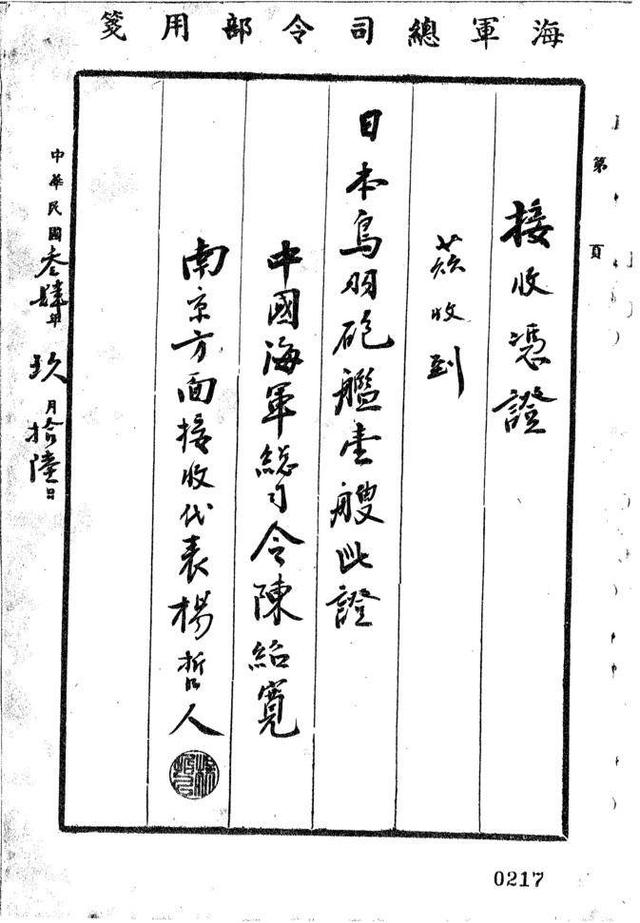 海軍總司令部用箋
第　頁
接收憑證
茲收到
日本鳥羽砲艦壹艘此證
中國海軍總司令陳紹寬
南京方面接收代表楊哲人
中華民國叁肆年玖月拾陸日
0217